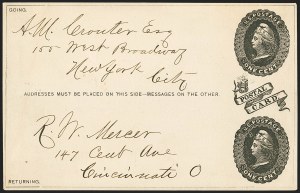 GOING.
U.S. POSTAGE
ONE CENT
A.M. Crouter Esq
100 West Broadway
New York City
POSTAL
CARD
ADDRESSES MUST BE PLACED ON THIS SIDE–MESSAGES ON THE OTHER.
U.S. POSTAGE
ONE CENT
R. W. Mercer
147 Cent Ave
Cincinnati O
RETURNING.